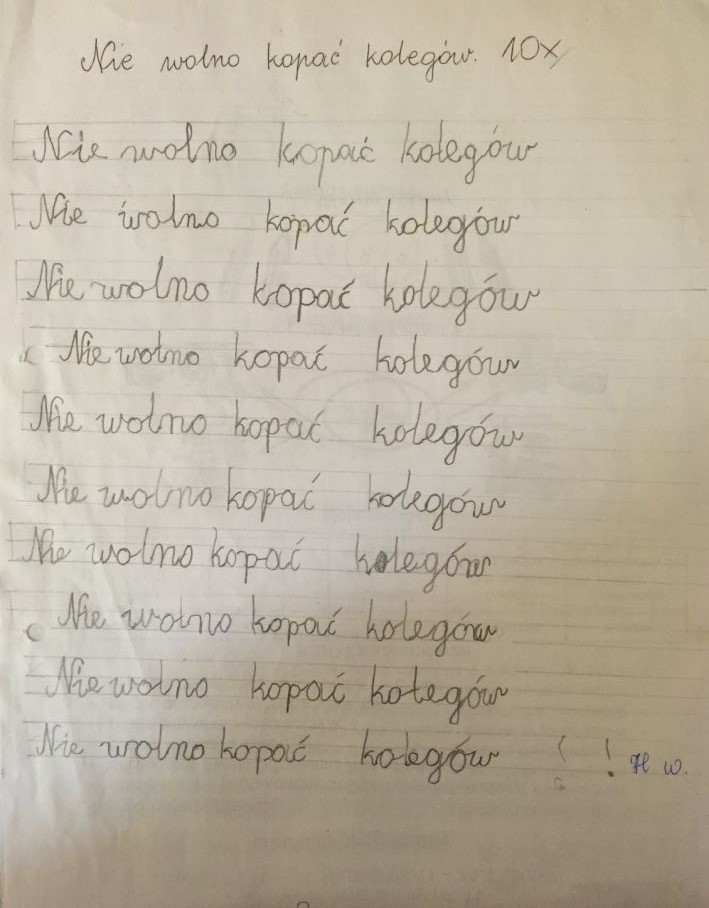 Nie wolno kopać kolegów. 10x
Nie wolno kopać kolegów
Nie wolno kopać kolegów
Nie wolno kopać kolegów
Nie wolno kopać kolegów
Nie wolno kopać kolegów
Nie wolno kopać kolegów
Nie wolno kopać kolegów
Nie wolno kopać kolegów
Nie wolno kopać kolegów
Nie wolno kopać kolegów !